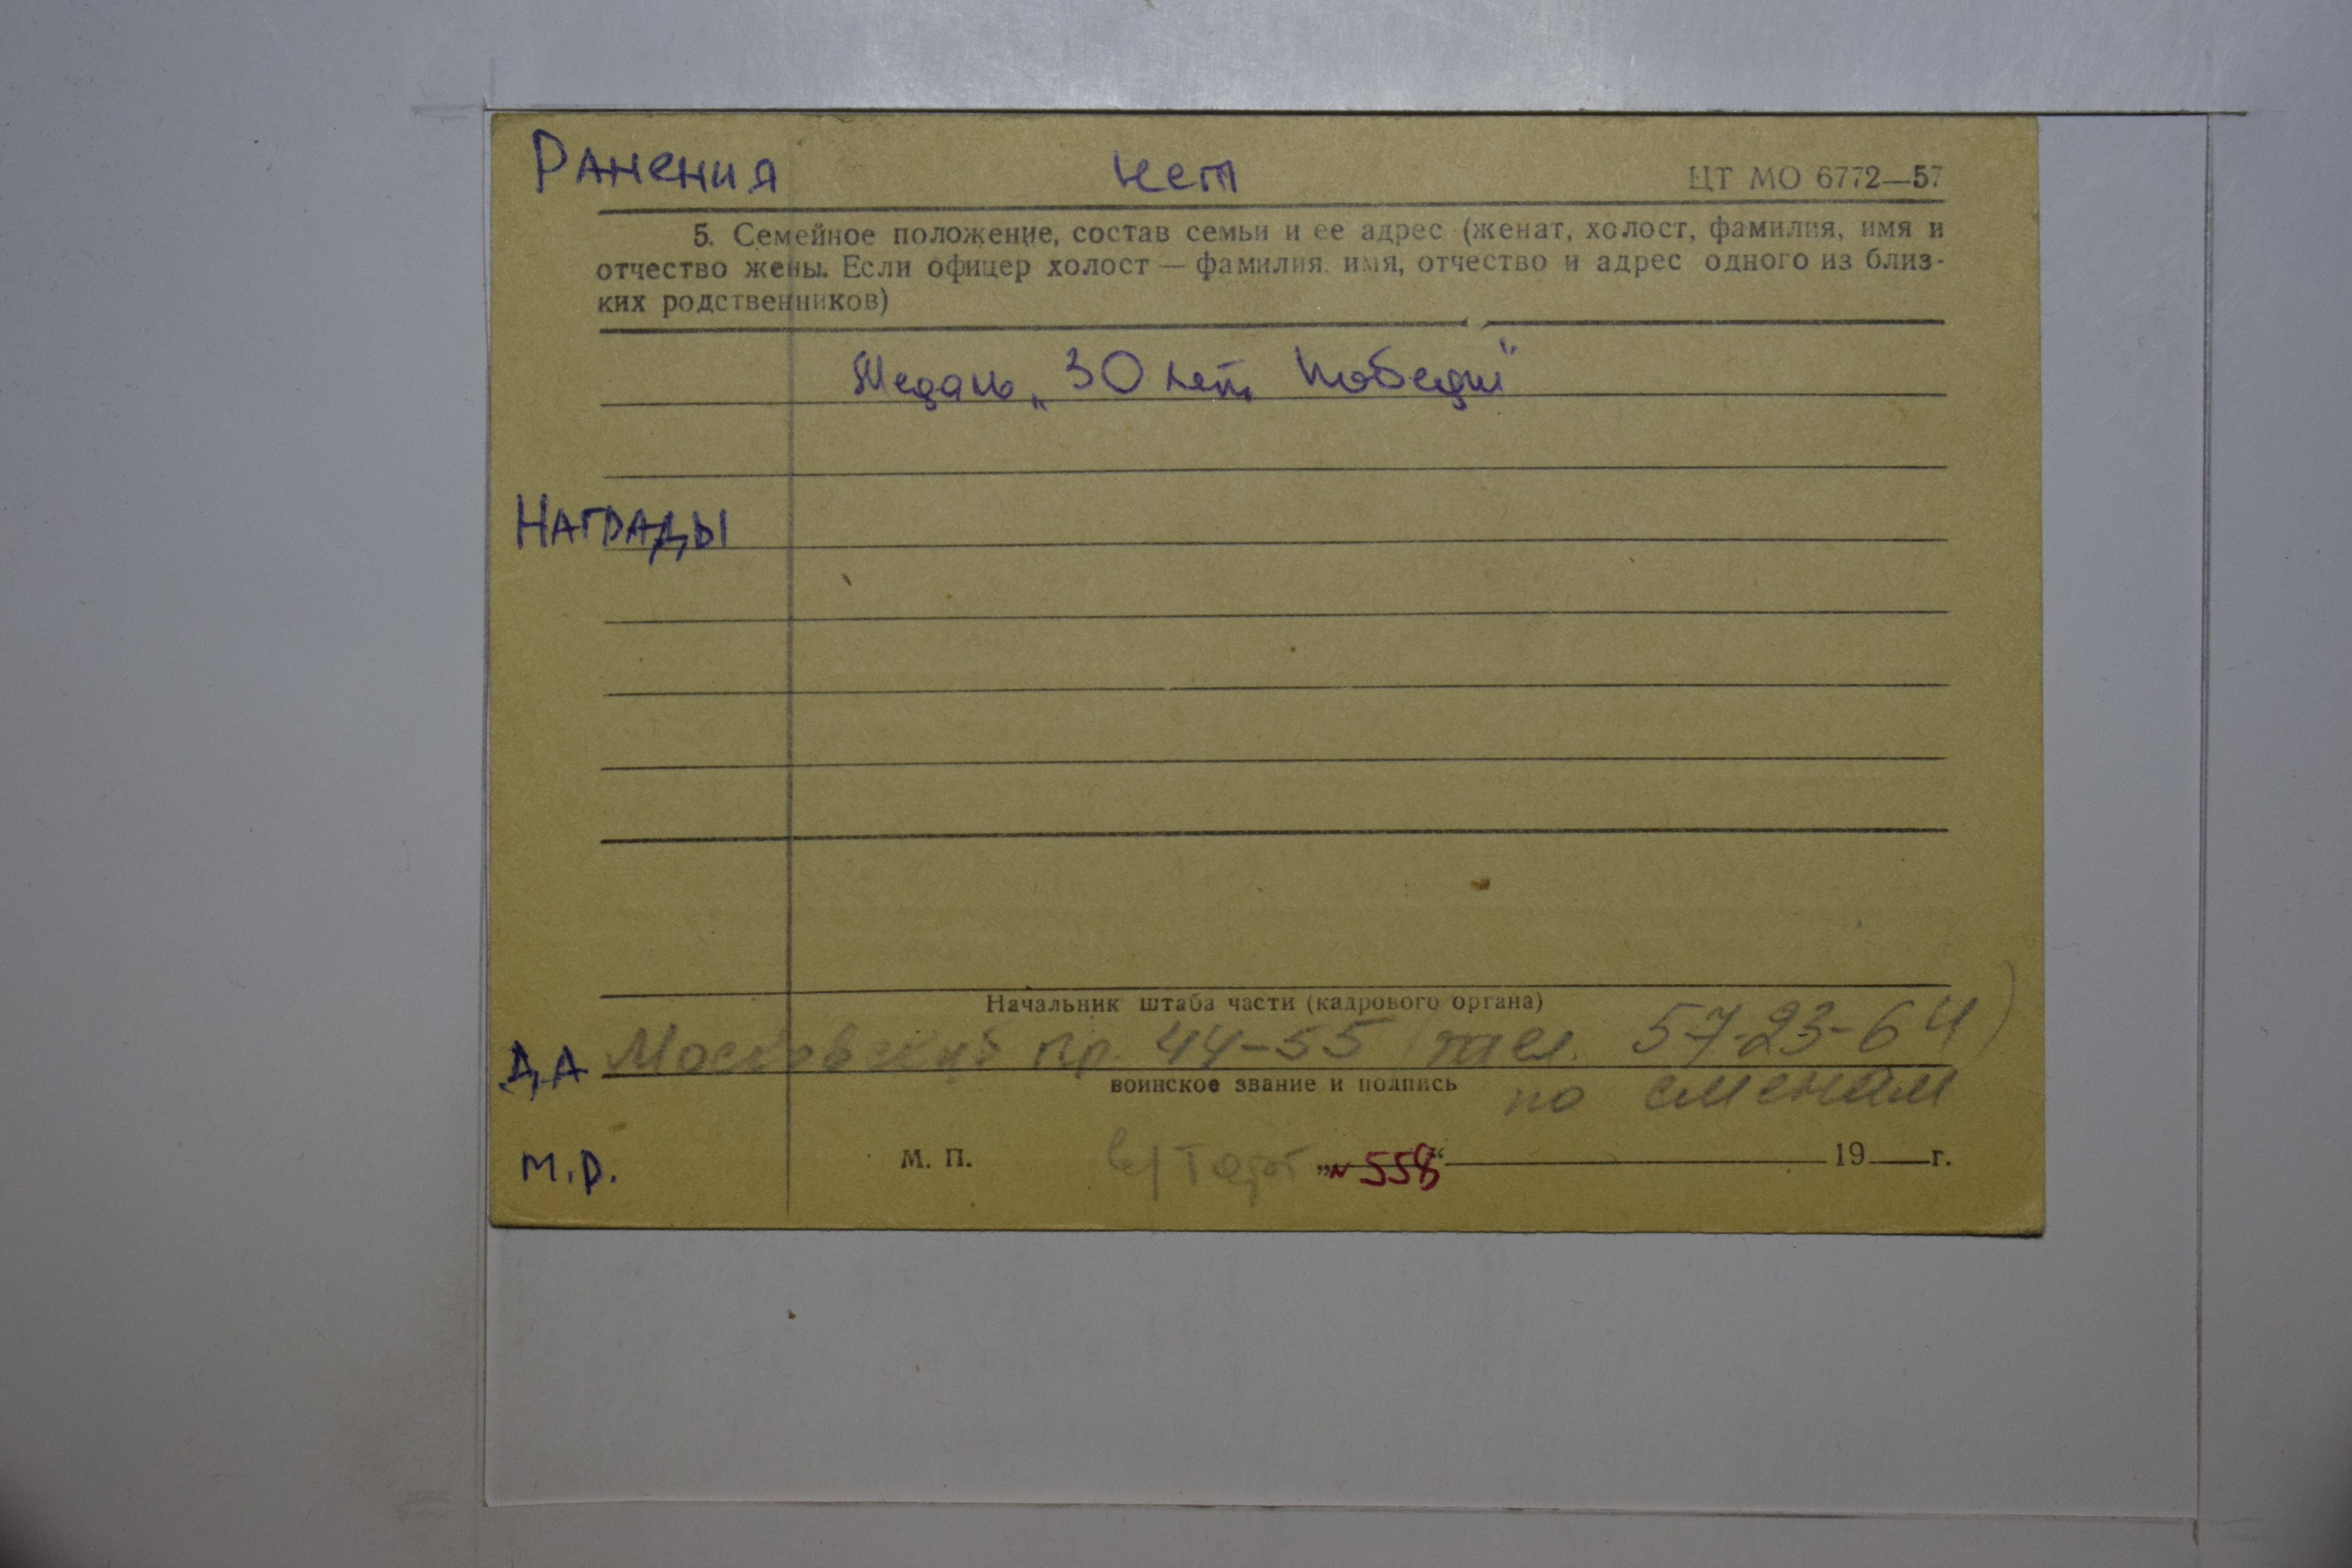 Ранения нет ЦТ МО 6772—57
5. Семейное положение, состав семьи и ее адрес (женат, холост, фамилия, имя и
отчество жены. Если офицер холост — фамилия, имя, отчество и адрес одного из близ-
ких родственников)
Медаль „30 лет Победы"
Награды
Начальник штаба части (кадрового органа)
Д.А Московский пр. 44-55 (тел. 57-23-64)
воинское звание и подпись
по сменам
М.Р. М. П. в/Торг „№ 558“ 19 г.